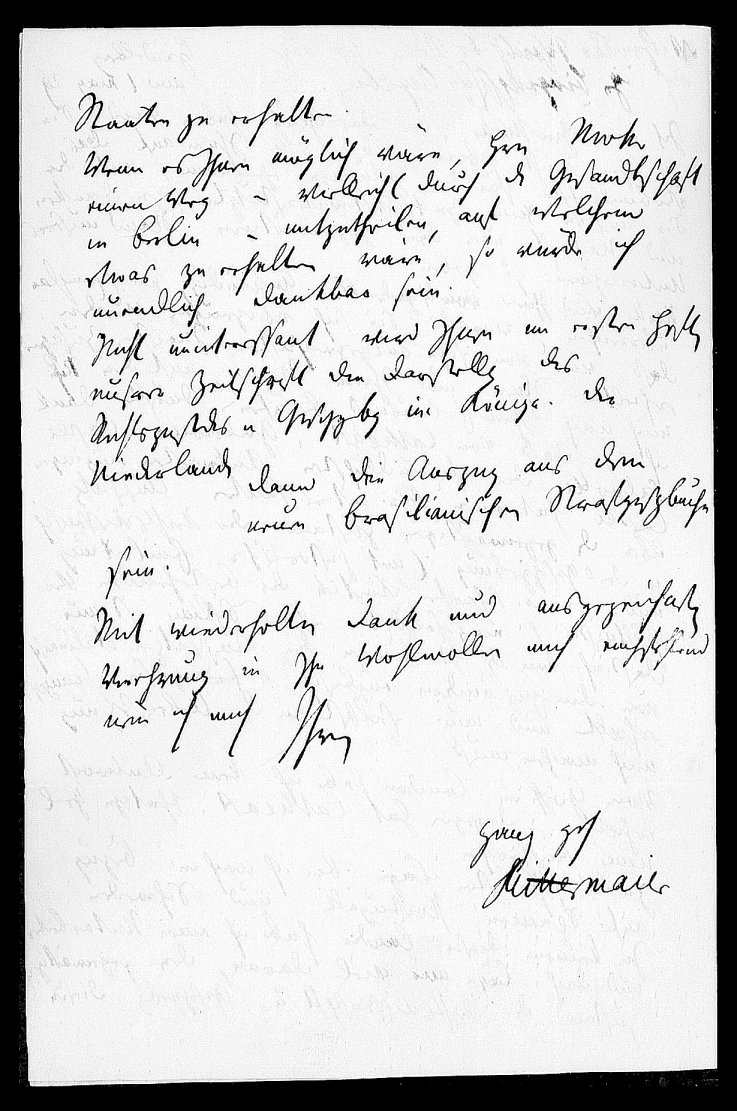 Staaten zu erhalten.
Wenn es Ihnen möglich wäre, Hrn
einen Weg – vielleicht durch die Gesandtschaft
in Berlin – mitzutheilen, auf welchem
etwas zu erhalten wäre, so würde ich
unendlich dankbar sein.
Nicht uninteressant wird Ihnen im ersten Hefte
unserer Zeitschrift die Darstellg des
Rechtszustdes u Gesetzgbg im Königr. der
Niederlande
dann die Auszug aus dem
neuen brasilianischen Strafgesetzbuche
sein.
Mit wiederholten Dank und ausgezeichneter
Verehrung in Ihr Wohlwollen mich empfehlend
nenn ich mich Ihren
ganz geh
Mittermaier